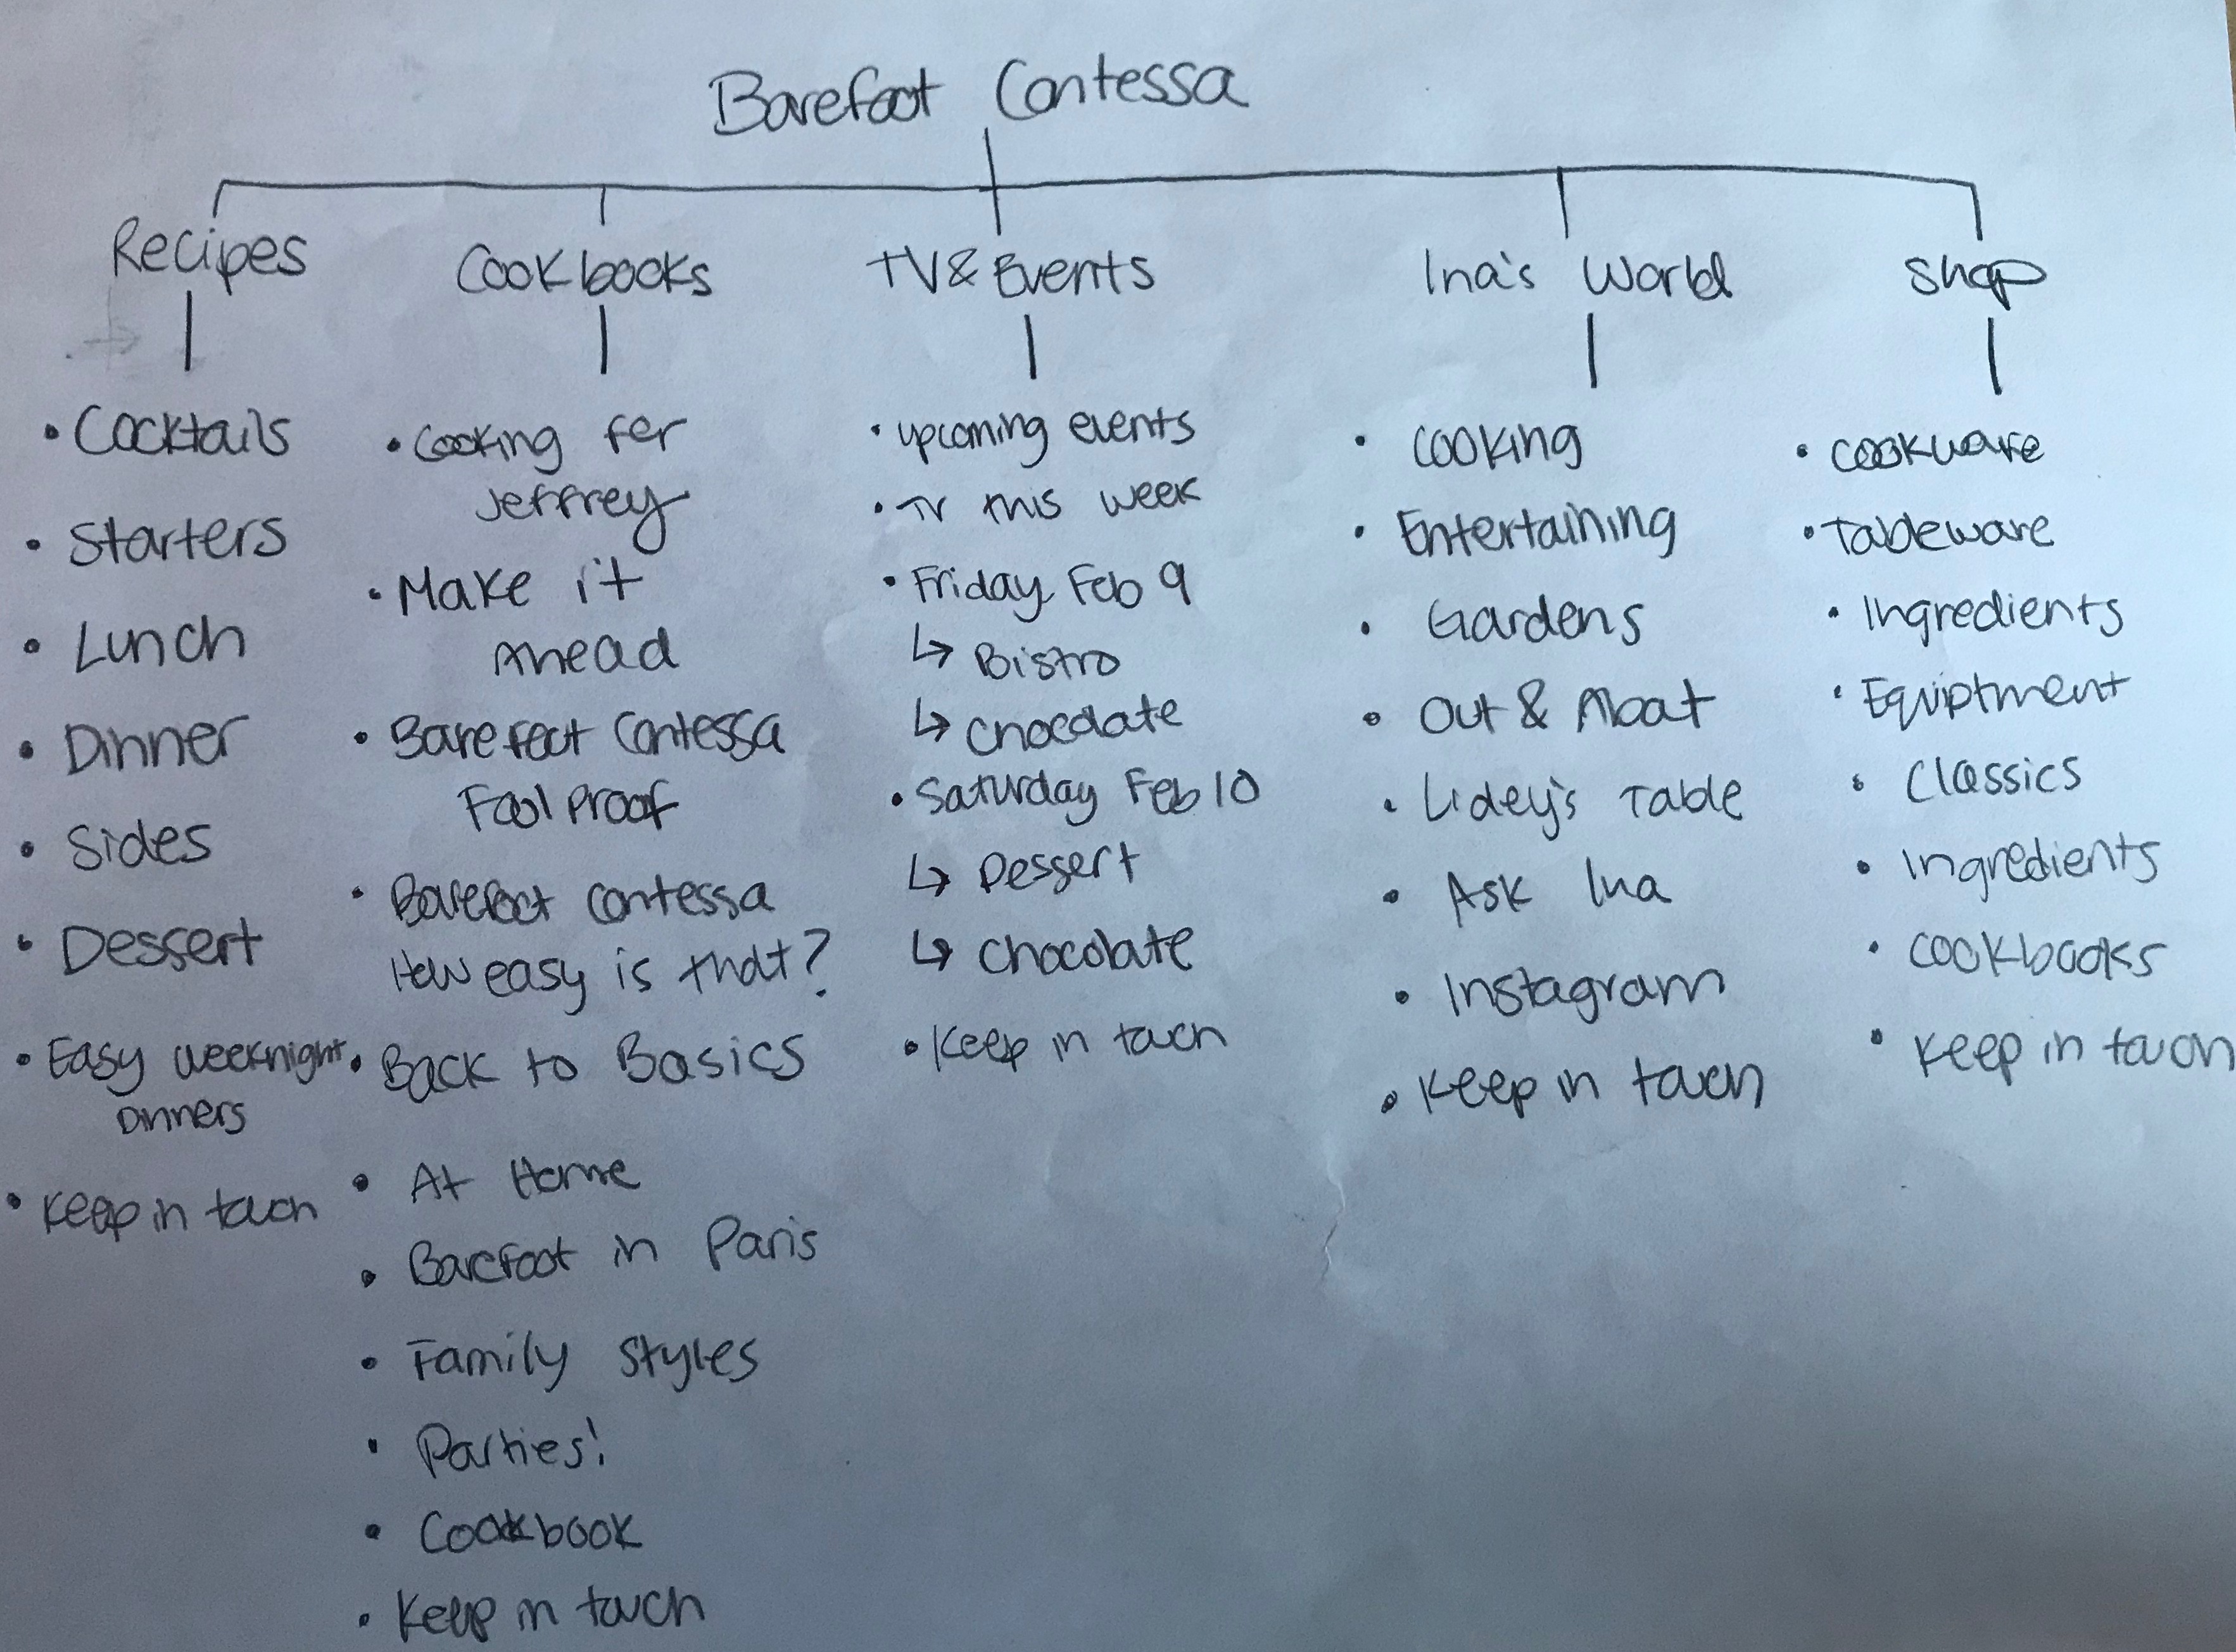 Barefoot Contessa
Recipes
• Cocktails
• Starters
• Lunch
• Dinner
• Sides
• Dessert
• Easy weeknight
Dinners
• Keep in touch
Cookbooks
• Cooking for
Jeffrey
• Make it
Ahead
• Barefoot Contessa
Foolproof
• Barefoot contessa
How easy is that?
• Back to Basics
• At Home
• Barefoot in Paris
• Family Styles
• Parties!
• Cookbook
• Keep in touch
TV & Events
• upcoming events
• TV this week
• Friday Feb 9
↳ Bistro
↳ Chocolate
• Saturday Feb 10
↳ Dessert
↳ Chocolate
• Keep in touch
Ina's World
• Cooking
• Entertaining
• Gardens
• Out & About
• Lidey's Table
• Ask Ina
• Instagram
• Keep in touch
Shop
• Cookware
• Tableware
• Ingredients
• Equiptment
• Classics
• Ingredients
• Cookbooks
• Keep in touch